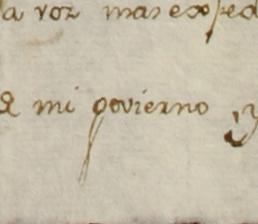 la voz mas exped
de mi govierno y